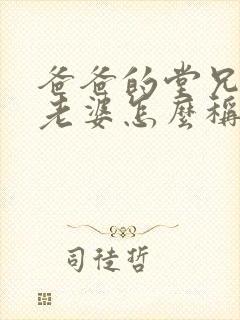 爸爸的堂兄
老婆怎麼稱
司徒哲